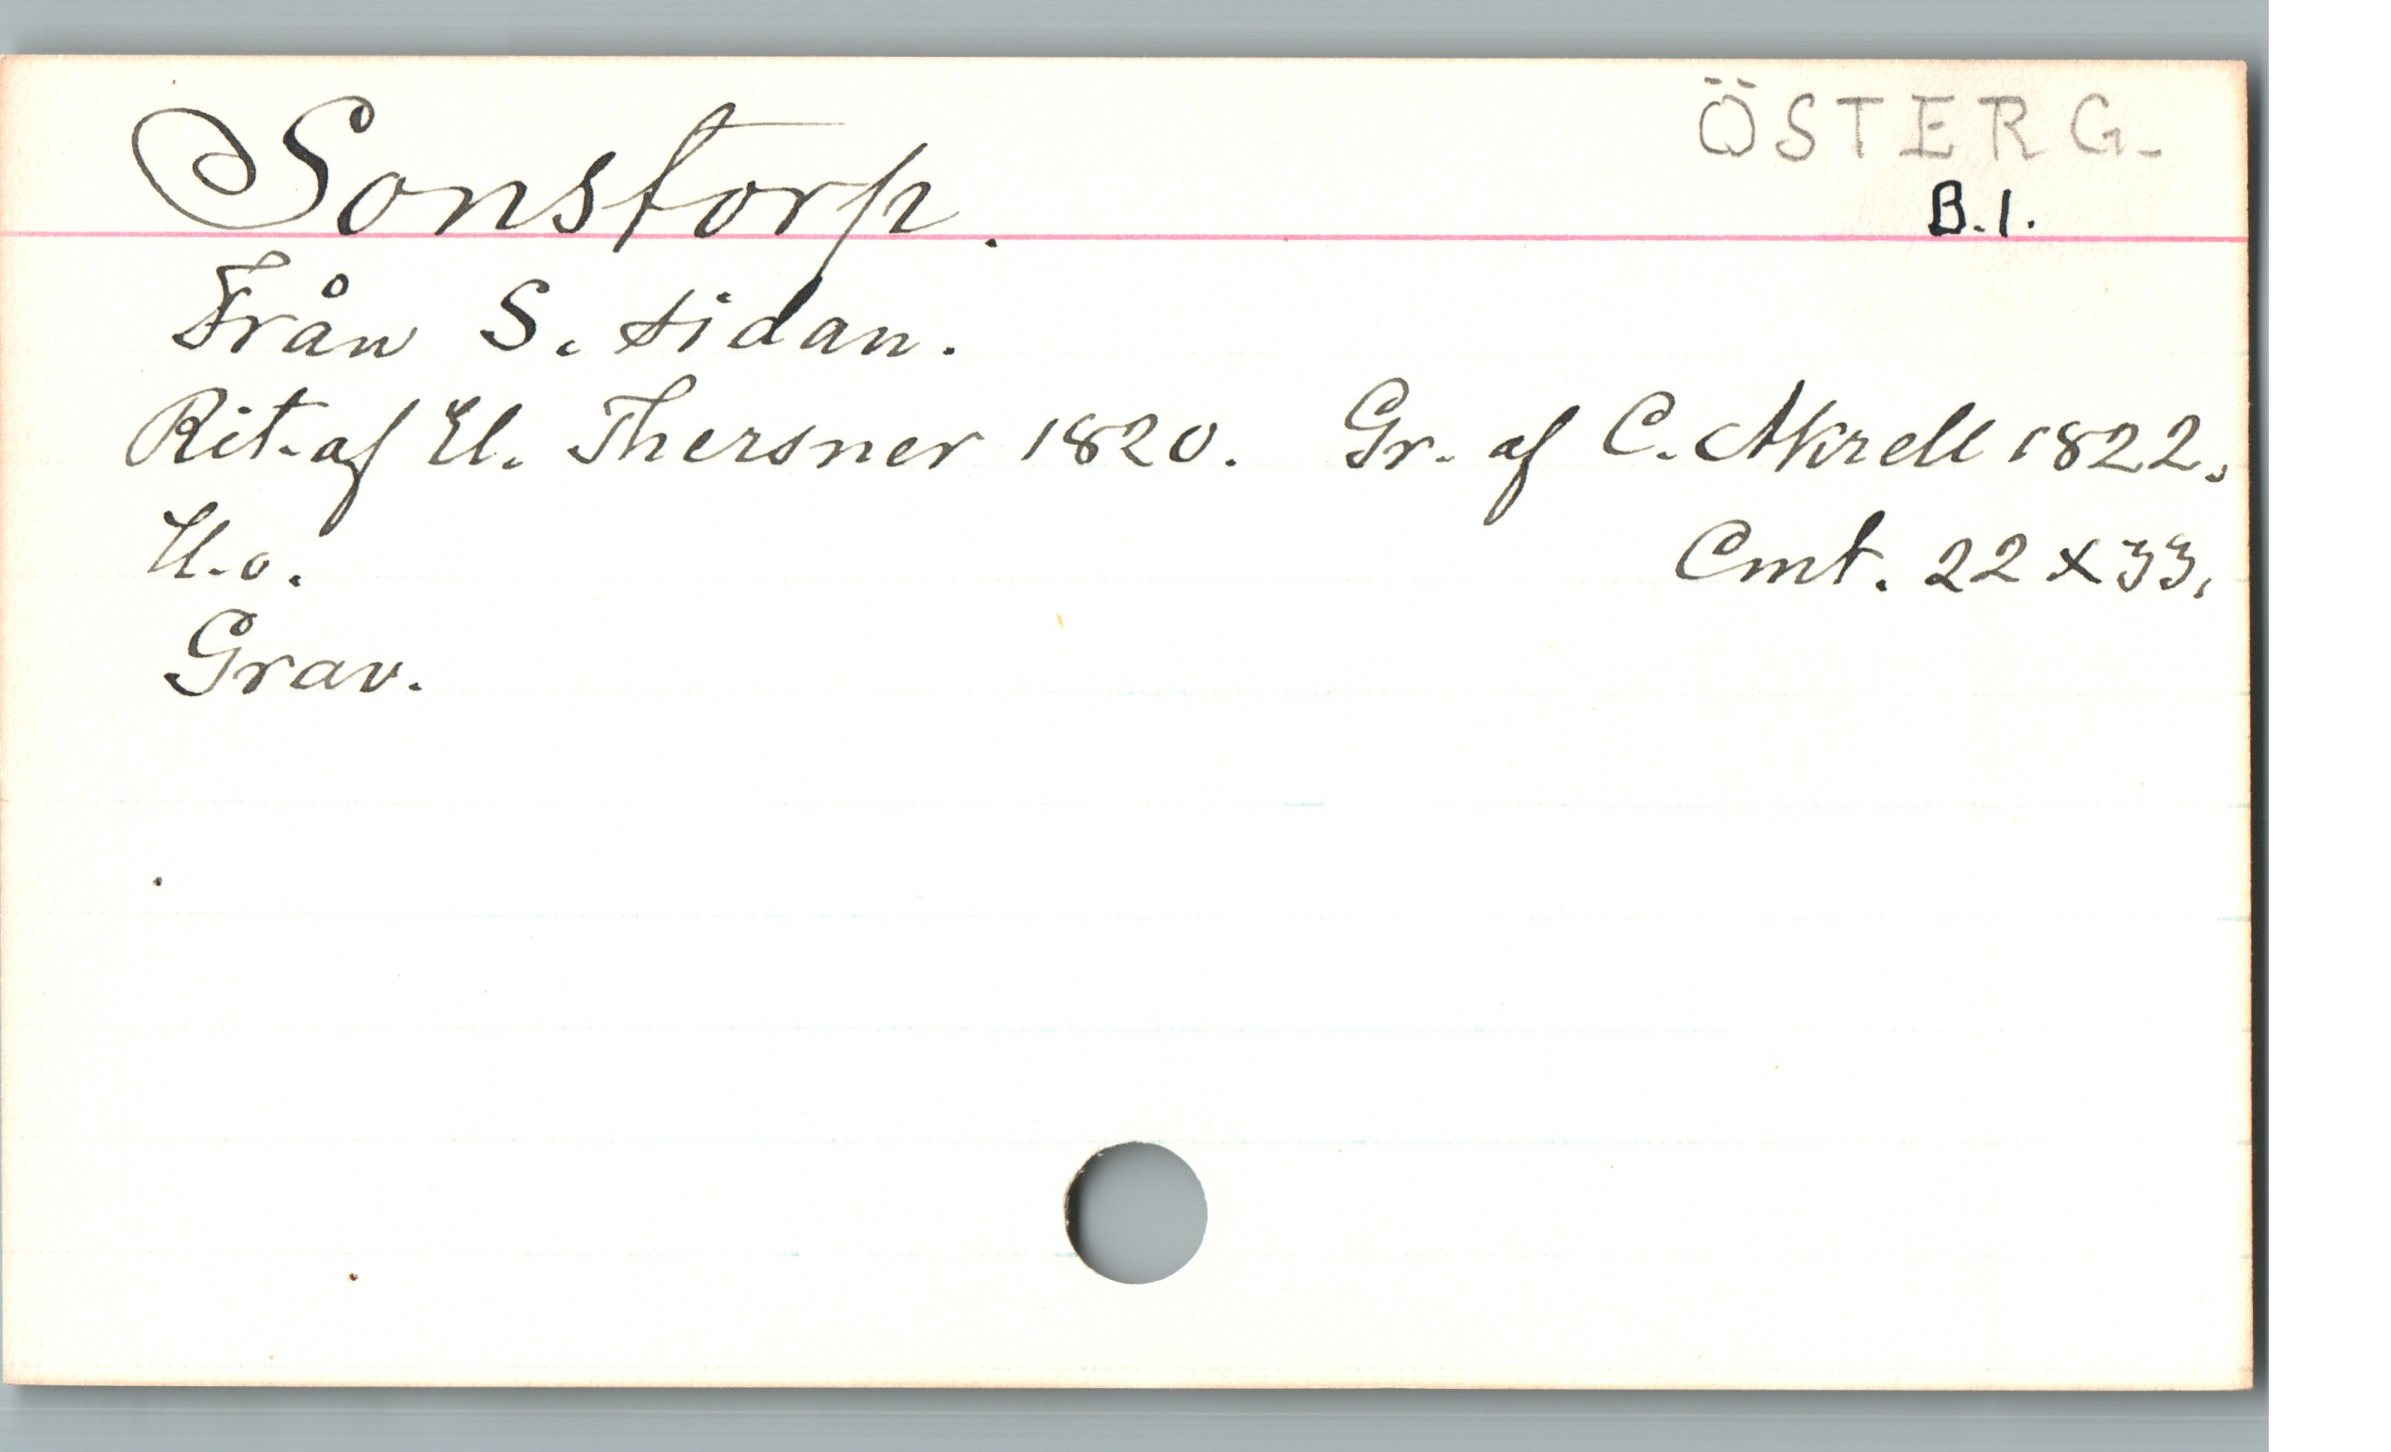 Sonstorp.
ÖSTERG.
B.1.
Från S. sidan.
Rit. af U. Thersner 1820. Gr. af C. Akrell 1822.
U.o. Cmt. 22 x 33.
Grav.